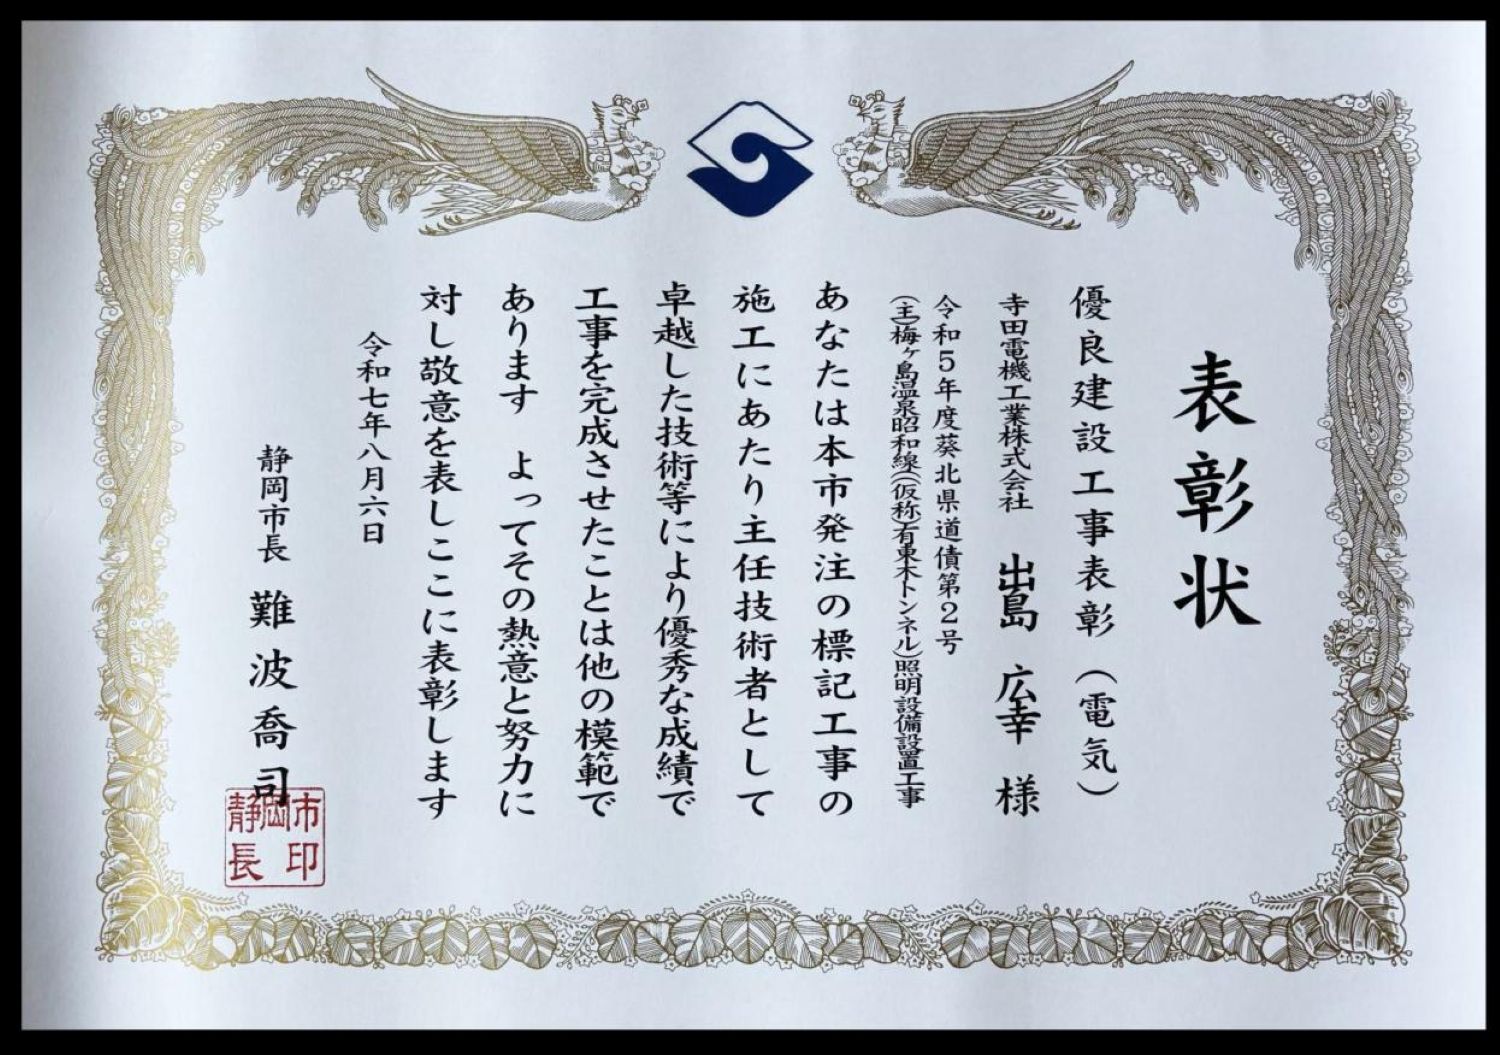 表彰状
優良建設工事表彰(電気)
寺田電機工業株式会社 出島 広幸 様
令和5年度葵北県道債第2号
(主)梅ヶ島温泉昭和線((仮称)有東木トンネル)照明設備設置工事
あなたは本市発注の標記工事の
施工にあたり主任技術者として
卓越した技術等により優秀な成績で
工事を完成させたことは他の模範で
あります よってその熱意と努力に
対し敬意を表しここに表彰します
令和七年八月六日
静岡市長 難波喬司
静岡市長印